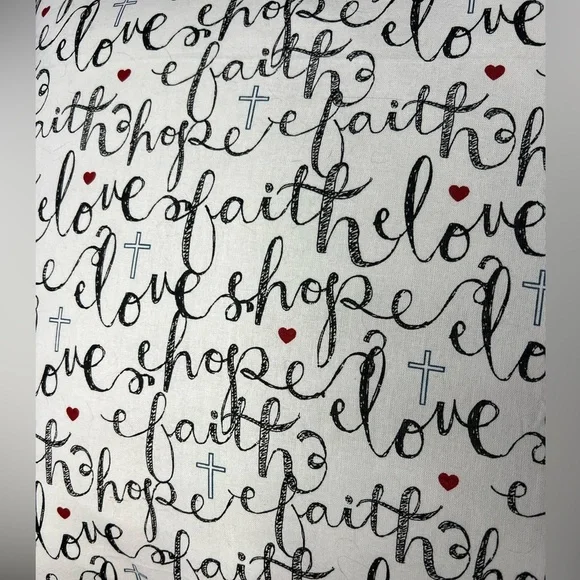 love hope faith love
faith
faith hope faith h
love faith love
love hope
love hope love
faith love
h hope faith
love faith love
faith hope